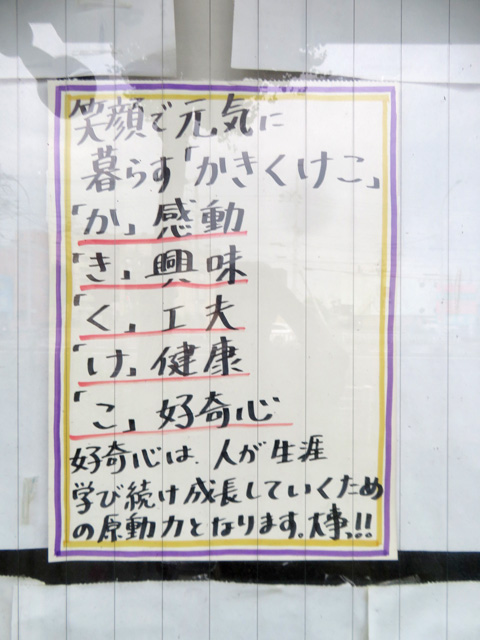 笑顔で元気に
暮らす「かきくけこ」
「か」感動
「き」興味
「く」工夫
「け」健康
「こ」好奇心
好奇心は、人が生涯
学び続け成長していくため
の原動力となります。大事っ!!